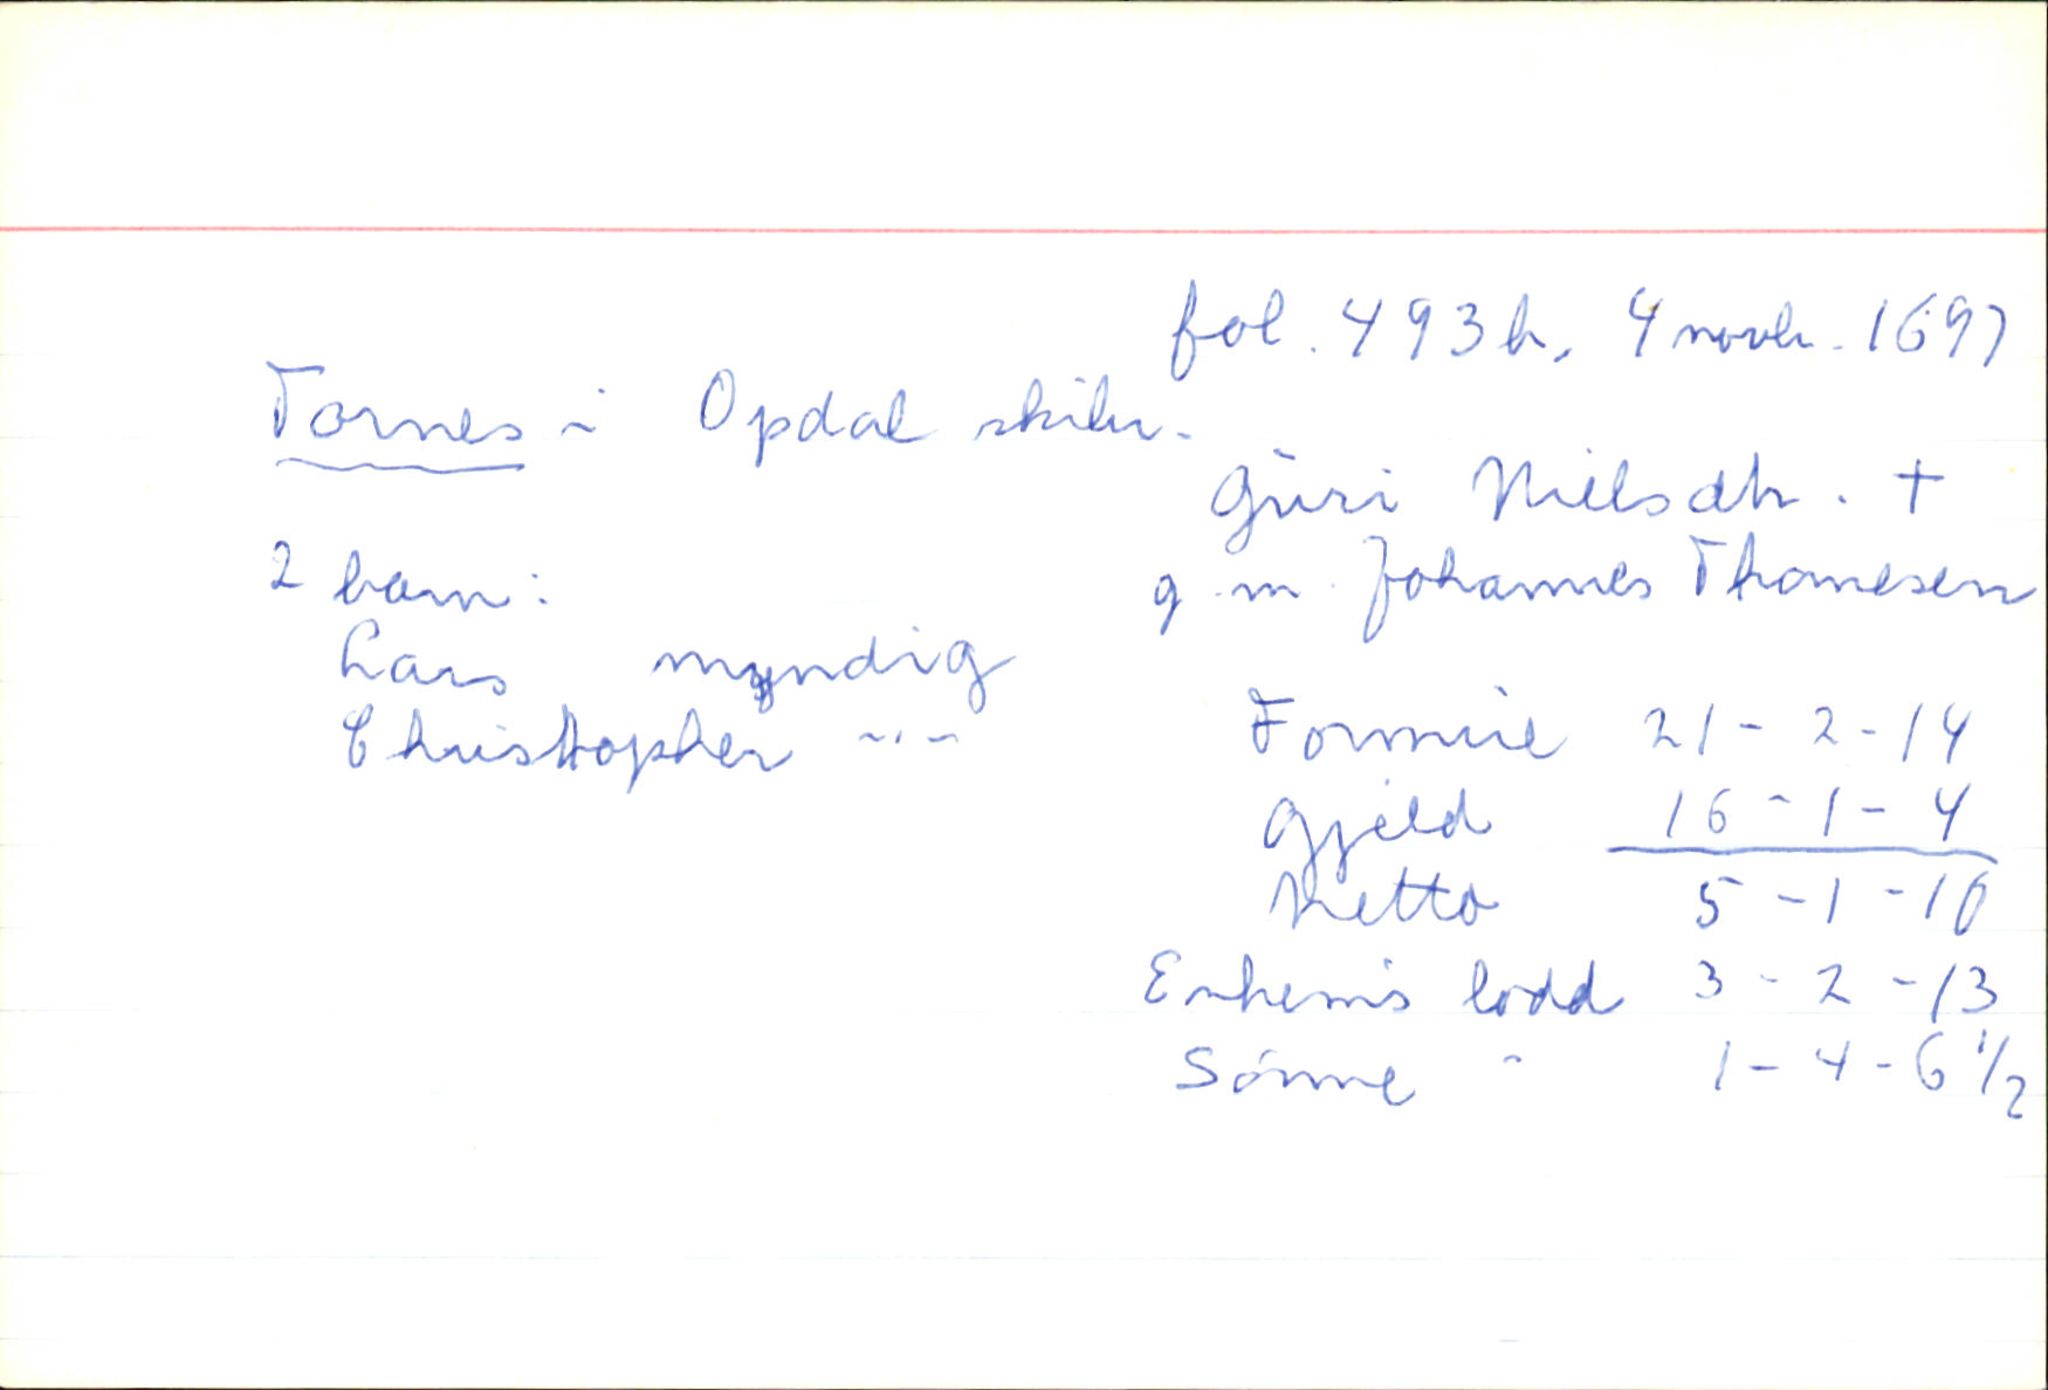 fol. 493b, 4 novbr. 1697
Tornes i Opdal skibr.
Guri Nielsdtr. +
g.m. Johannes Thomesen
2 barn:
Lars myndig
Christtopher -"-
Formue 21-2-14
Gjeld 16-1-4
Netto 5-1-10
Enkem's lodd 3-2-13
Sønne " 1-4-6 1/2